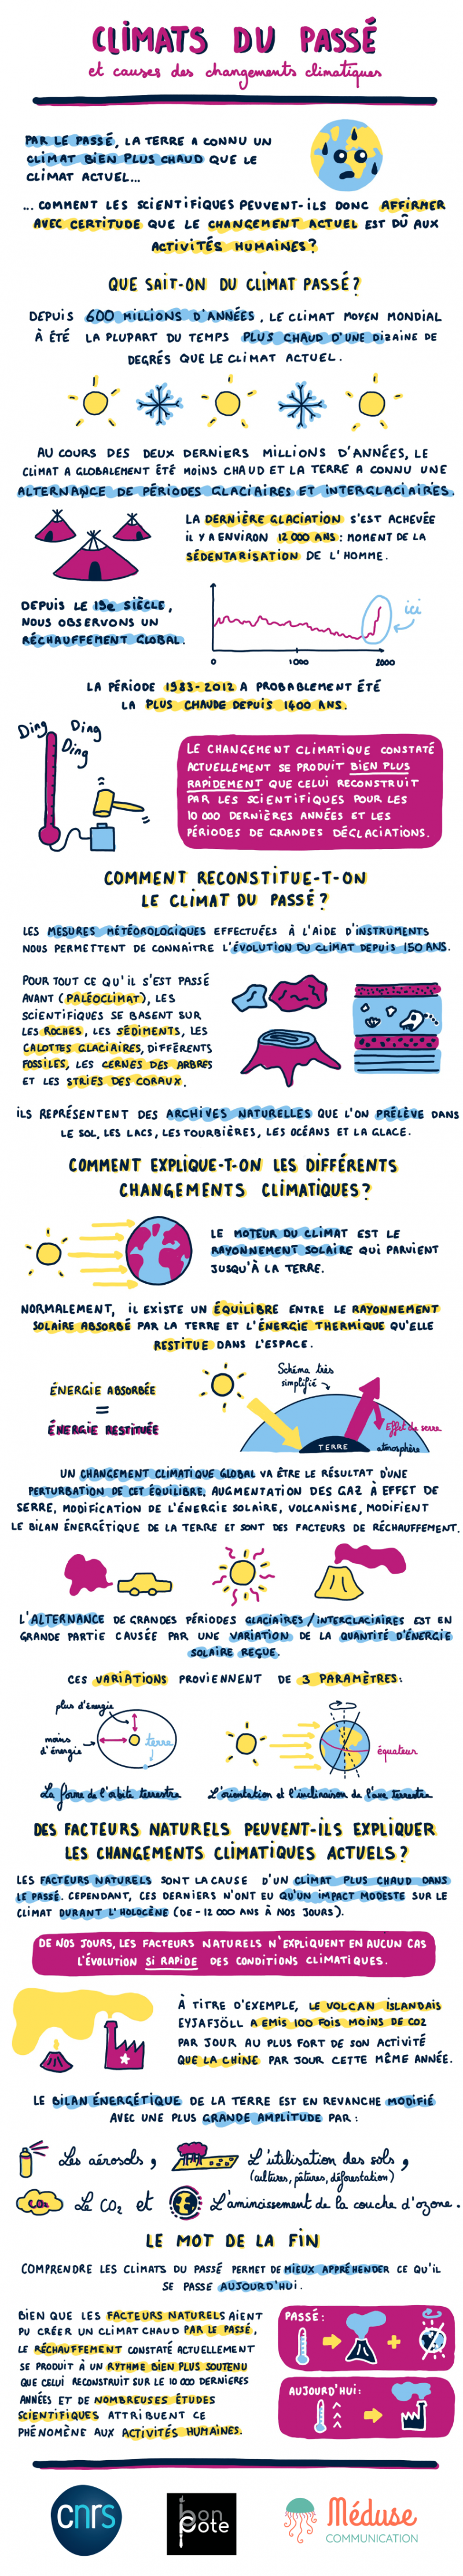 CLIMATS DU PASSÉ
et causes des changements climatiques
PAR LE PASSÉ, LA TERRE A CONNU UN
CLIMAT BIEN PLUS CHAUD QUE LE
CLIMAT ACTUEL...
... COMMENT LES SCIENTIFIQUES PEUVENT-ILS DONC AFFIRMER
AVEC CERTITUDE QUE LE CHANGEMENT ACTUEL EST DÛ AUX
ACTIVITÉS HUMAINES ?
QUE SAIT-ON DU CLIMAT PASSÉ ?
DEPUIS 600 MILLIONS D'ANNÉES, LE CLIMAT MOYEN MONDIAL
À ÉTÉ LA PLUPART DU TEMPS PLUS CHAUD D'UNE DIZAINE DE
DEGRÉS QUE LE CLIMAT ACTUEL.
AU COURS DES DEUX DERNIERS MILLIONS D'ANNÉES, LE
CLIMAT A GLOBALEMENT ÉTÉ MOINS CHAUD ET LA TERRE A CONNU UNE
ALTERNANCE DE PÉRIODES GLACIAIRES ET INTERGLACIAIRES.
LA DERNIÈRE GLACIATION S'EST ACHEVÉE
IL Y A ENVIRON 12 000 ANS : MOMENT DE LA
SÉDENTARISATION DE L'HOMME.
DEPUIS LE 19e SIÈCLE,
NOUS OBSERVONS UN
RÉCHAUFFEMENT GLOBAL.
ici
0 1000 2000
LA PÉRIODE 1983-2012 A PROBABLEMENT ÉTÉ
LA PLUS CHAUDE DEPUIS 1400 ANS.
Ding Ding
Ding
LE CHANGEMENT CLIMATIQUE CONSTATÉ
ACTUELLEMENT SE PRODUIT BIEN PLUS
RAPIDEMENT QUE CELUI RECONSTRUIT
PAR LES SCIENTIFIQUES POUR LES
10 000 DERNIÈRES ANNÉES ET LES
PÉRIODES DE GRANDES DÉGLACIATIONS.
COMMENT RECONSTITUE-T-ON
LE CLIMAT DU PASSÉ ?
LES MESURES MÉTÉOROLOGIQUES EFFECTUÉES À L'AIDE D'INSTRUMENTS
NOUS PERMETTENT DE CONNAITRE L'ÉVOLUTION DU CLIMAT DEPUIS 150 ANS.
POUR TOUT CE QU'IL S'EST PASSÉ
AVANT (PALÉOCLIMAT), LES
SCIENTIFIQUES SE BASENT SUR
LES ROCHES, LES SÉDIMENTS, LES
CALOTTES GLACIAIRES, DIFFÉRENTS
FOSSILES, LES CERNES DES ARBRES
ET LES STRIES DES CORAUX.
ILS REPRÉSENTENT DES ARCHIVES NATURELLES QUE L'ON PRÉLÈVE DANS
LE SOL, LES LACS, LES TOURBIÈRES, LES OCÉANS ET LA GLACE.
COMMENT EXPLIQUE-T-ON LES DIFFÉRENTS
CHANGEMENTS CLIMATIQUES ?
LE MOTEUR DU CLIMAT EST LE
RAYONNEMENT SOLAIRE QUI PARVIENT
JUSQU'À LA TERRE.
NORMALEMENT, IL EXISTE UN ÉQUILIBRE ENTRE LE RAYONNEMENT
SOLAIRE ABSORBÉ PAR LA TERRE ET L'ÉNERGIE THERMIQUE QU'ELLE
RESTITUE DANS L'ESPACE.
Schéma très
simplifié
ÉNERGIE ABSORBÉE
=
ÉNERGIE RESTITUÉE
Effet de serre
TERRE
atmosphère
UN CHANGEMENT CLIMATIQUE GLOBAL VA ÊTRE LE RÉSULTAT D'UNE
PERTURBATION DE CET ÉQUILIBRE. AUGMENTATION DES GAZ À EFFET DE
SERRE, MODIFICATION DE L'ÉNERGIE SOLAIRE, VOLCANISME, MODIFIENT
LE BILAN ÉNERGÉTIQUE DE LA TERRE ET SONT DES FACTEURS DE RÉCHAUFFEMENT.
L'ALTERNANCE DE GRANDES PÉRIODES GLACIAIRES/INTERGLACIAIRES EST EN
GRANDE PARTIE CAUSÉE PAR UNE VARIATION DE LA QUANTITÉ D'ÉNERGIE
SOLAIRE REÇUE.
CES VARIATIONS PROVIENNENT DE 3 PARAMÈTRES :
plus d'énergie
moins
d'énergie
terre
équateur
La forme de l'orbite terrestre
L'orientation et l'inclinaison de l'axe terrestre
DES FACTEURS NATURELS PEUVENT-ILS EXPLIQUER
LES CHANGEMENTS CLIMATIQUES ACTUELS ?
LES FACTEURS NATURELS SONT LA CAUSE D'UN CLIMAT PLUS CHAUD DANS
LE PASSÉ. CEPENDANT, CES DERNIERS N'ONT EU QU'UN IMPACT MODESTE SUR LE
CLIMAT DURANT L'HOLOCÈNE (DE -12 000 ANS À NOS JOURS).
DE NOS JOURS, LES FACTEURS NATURELS N'EXPLIQUENT EN AUCUN CAS
L'ÉVOLUTION SI RAPIDE DES CONDITIONS CLIMATIQUES.
À TITRE D'EXEMPLE, LE VOLCAN ISLANDAIS
EYJAFJÖLL A EMIS 100 FOIS MOINS DE CO2
PAR JOUR AU PLUS FORT DE SON ACTIVITÉ
QUE LA CHINE PAR JOUR CETTE MÊME ANNÉE.
LE BILAN ÉNERGÉTIQUE DE LA TERRE EST EN REVANCHE MODIFIÉ
AVEC UNE PLUS GRANDE AMPLITUDE PAR :
Les aérosols,
L'utilisation des sols,
(cultures, pâtures, déforestation)
CO2
Le CO2 et
L'amincissement de la couche d'ozone.
LE MOT DE LA FIN
COMPRENDRE LES CLIMATS DU PASSÉ PERMET DE MIEUX APPRÉHENDER CE QU'IL
SE PASSE AUJOURD'HUI.
BIEN QUE LES FACTEURS NATURELS AIENT
PU CRÉER UN CLIMAT CHAUD PAR LE PASSÉ,
LE RÉCHAUFFEMENT CONSTATÉ ACTUELLEMENT
SE PRODUIT À UN RYTHME BIEN PLUS SOUTENU
QUE CELUI RECONSTRUIT SUR LE 10 000 DERNIÈRES
ANNÉES ET DE NOMBREUSES ÉTUDES
SCIENTIFIQUES ATTRIBUENT CE
PHÉNOMÈNE AUX ACTIVITÉS HUMAINES.
PASSÉ :
AUJOURD'HUI :
cnrs
bon
pote
Méduse
COMMUNICATION